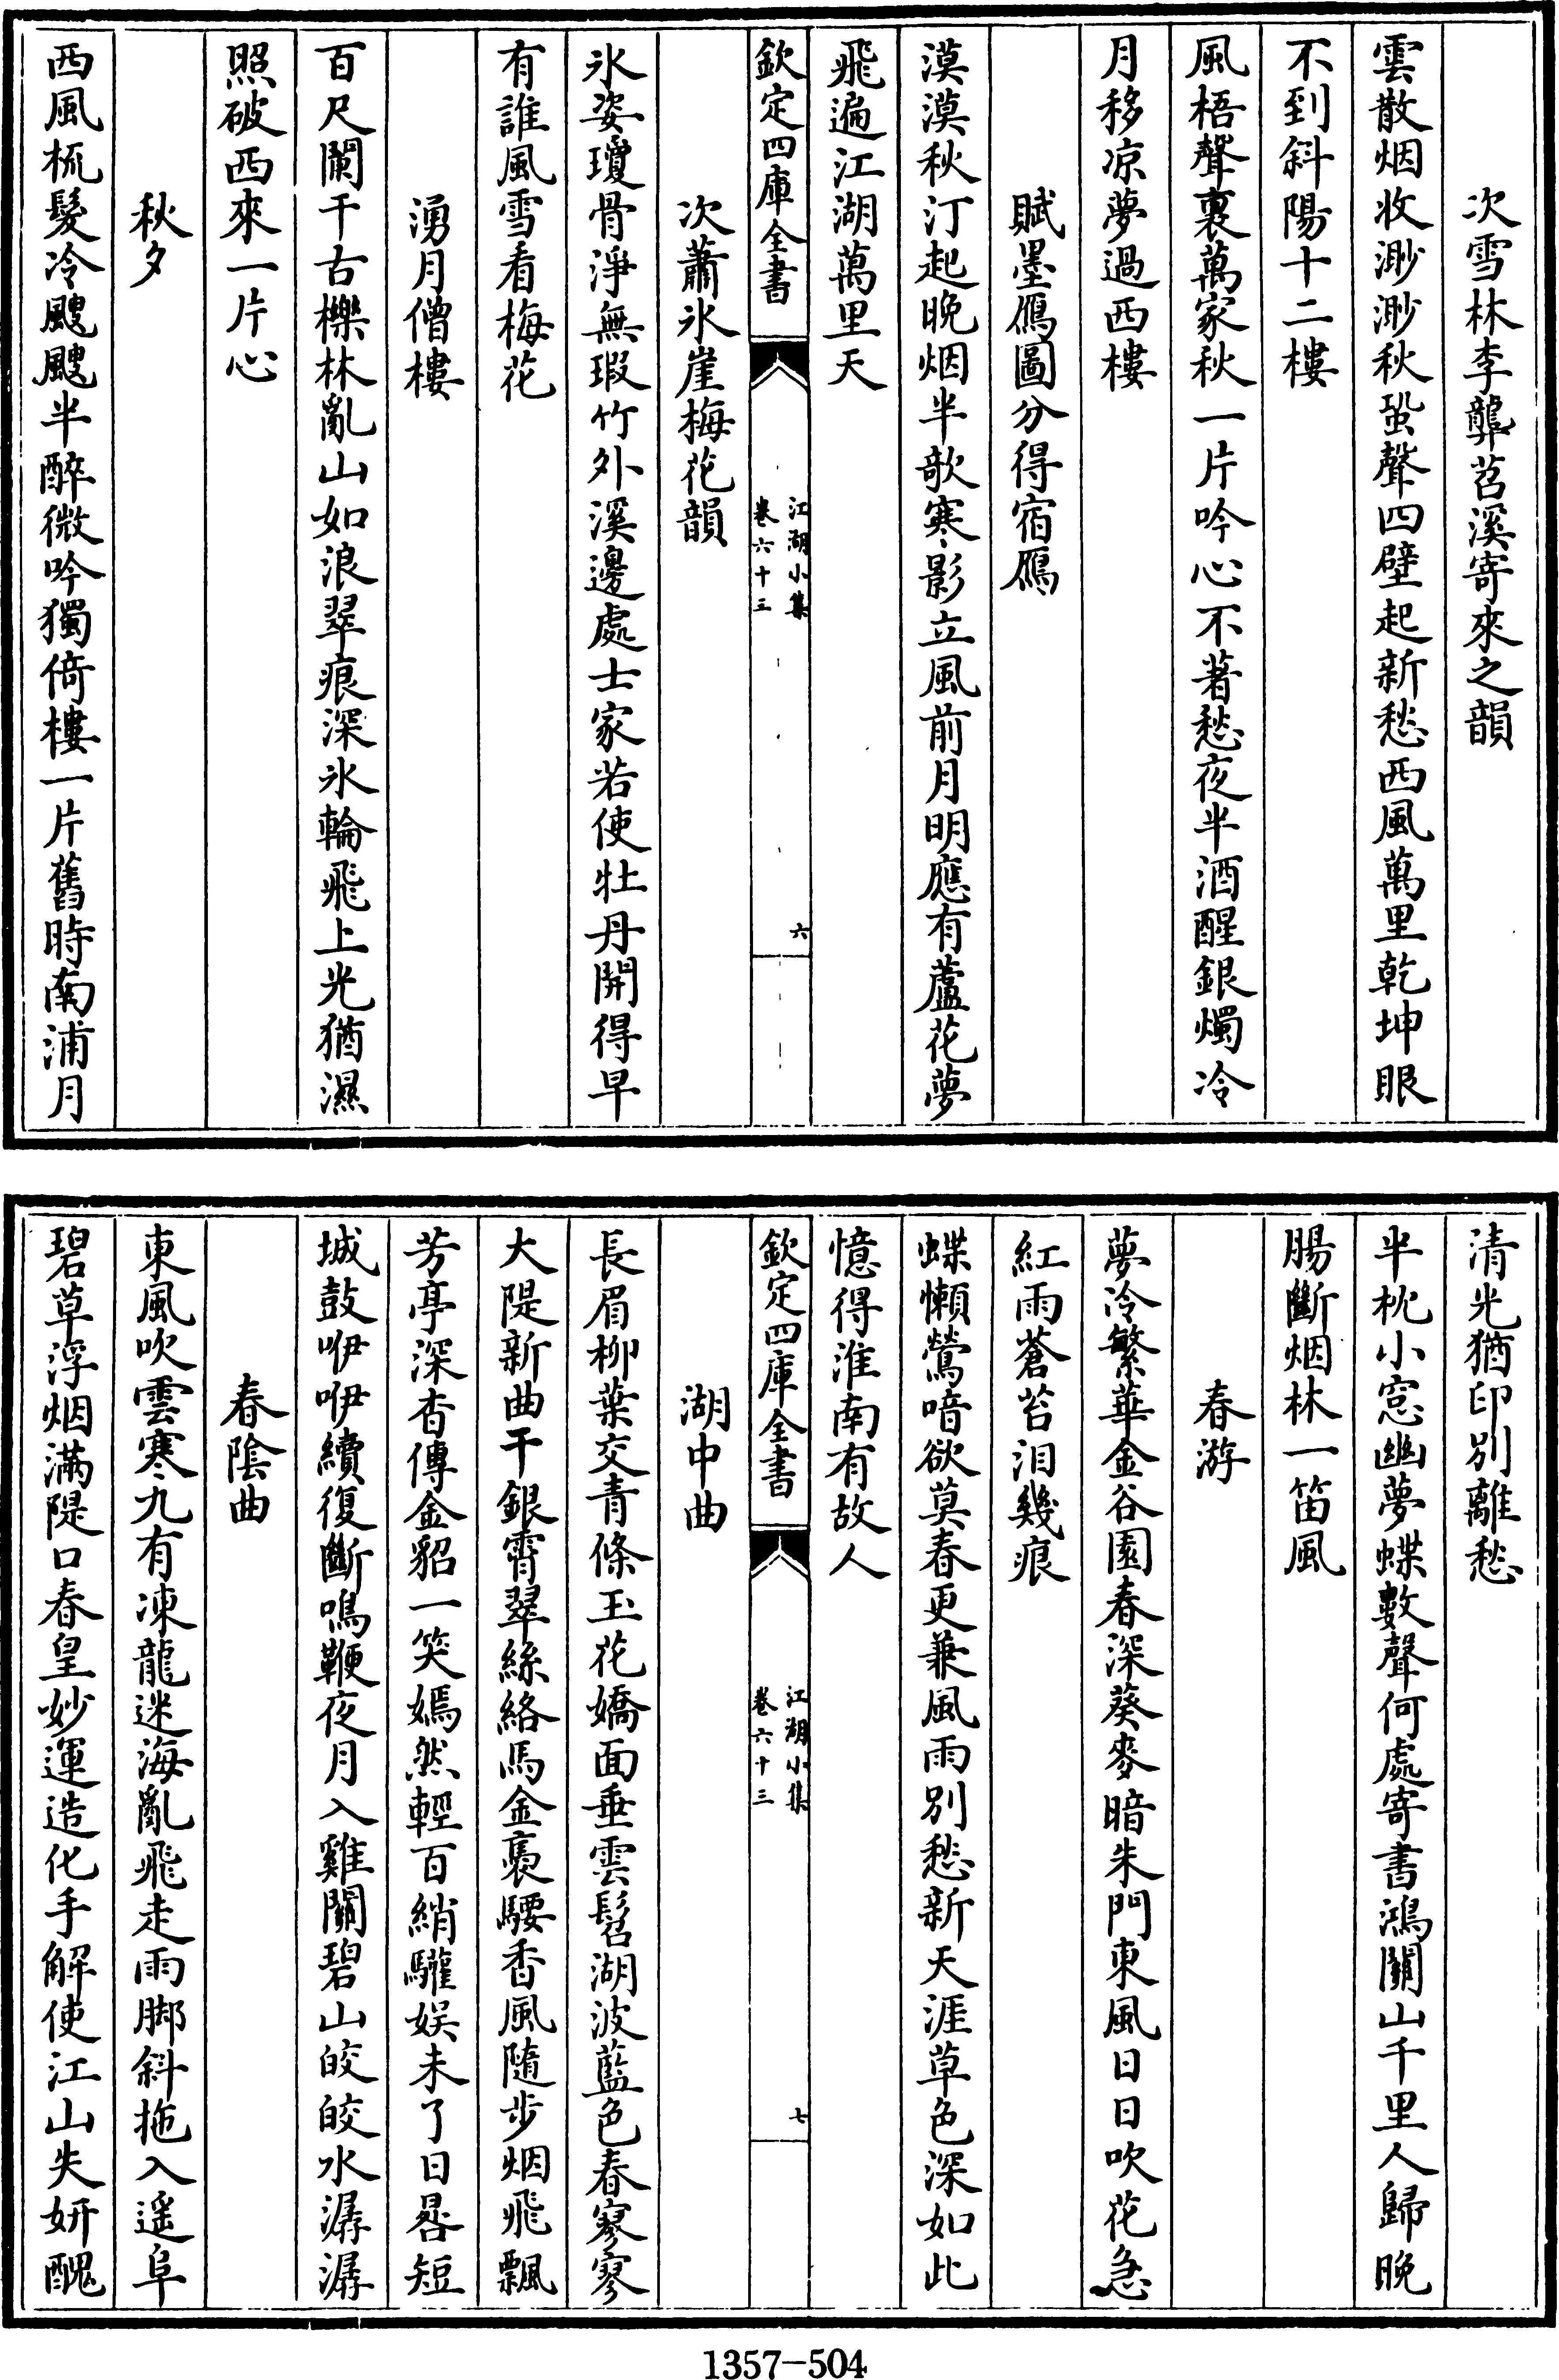 次雪林李龏苕溪寄來之韻
雲散烟收渺渺秋蛩聲四壁起新愁西風萬里乾坤眼
不到斜陽十二樓
風梧聲裏萬家秋一片吟心不著愁夜半酒醒銀燭冷
月移凉夢過西樓
賦墨鴈圖分得宿鴈
漠漠秋汀起晚烟半欹寒影立風前月明應有蘆花夢
飛遍江湖萬里天
欽定四庫全書
江湖小集
卷六十三
六
次蕭氷崖梅花韻
氷姿瓊骨淨無瑕竹外溪邊處士家若使牡丹開得早
有誰風雪看梅花
湧月僧樓
百尺闌干古櫟林亂山如浪翠痕深氷輪飛上光猶濕
照破西來一片心
秋夕
西風梳髮冷颼颼半醉微吟獨倚樓一片舊時南浦月
清光猶印別離愁
半枕小窓幽夢蝶數聲何處寄書鴻關山千里人歸晚
腸斷烟林一笛風
春游
夢冷繁華金谷園春深葵麥暗朱門東風日日吹花急
紅雨蒼苔泪幾痕
蝶懶鶯喑欲莫春更兼風雨別愁新天涯草色深如此
憶得淮南有故人
欽定四庫全書
江湖小集
卷六十三
七
湖中曲
長眉柳葉交青條玉花嬌面垂雲髫湖波藍色春寥寥
大隄新曲干銀霄翠絲絡馬金褭騕香風隨步烟飛飄
芳亭深杏傳金貂一笑嫣然輕百綃驩娱未了日晷短
城鼓咿咿續復斷鳴鞭夜月入雞關碧山皎皎水潺潺
春陰曲
東風吹雲寒九有凍龍迷海亂飛走雨脚斜拖入遥阜
碧草浮烟滿隄口春皇妙運造化手解使江山失妍醜
1357-504